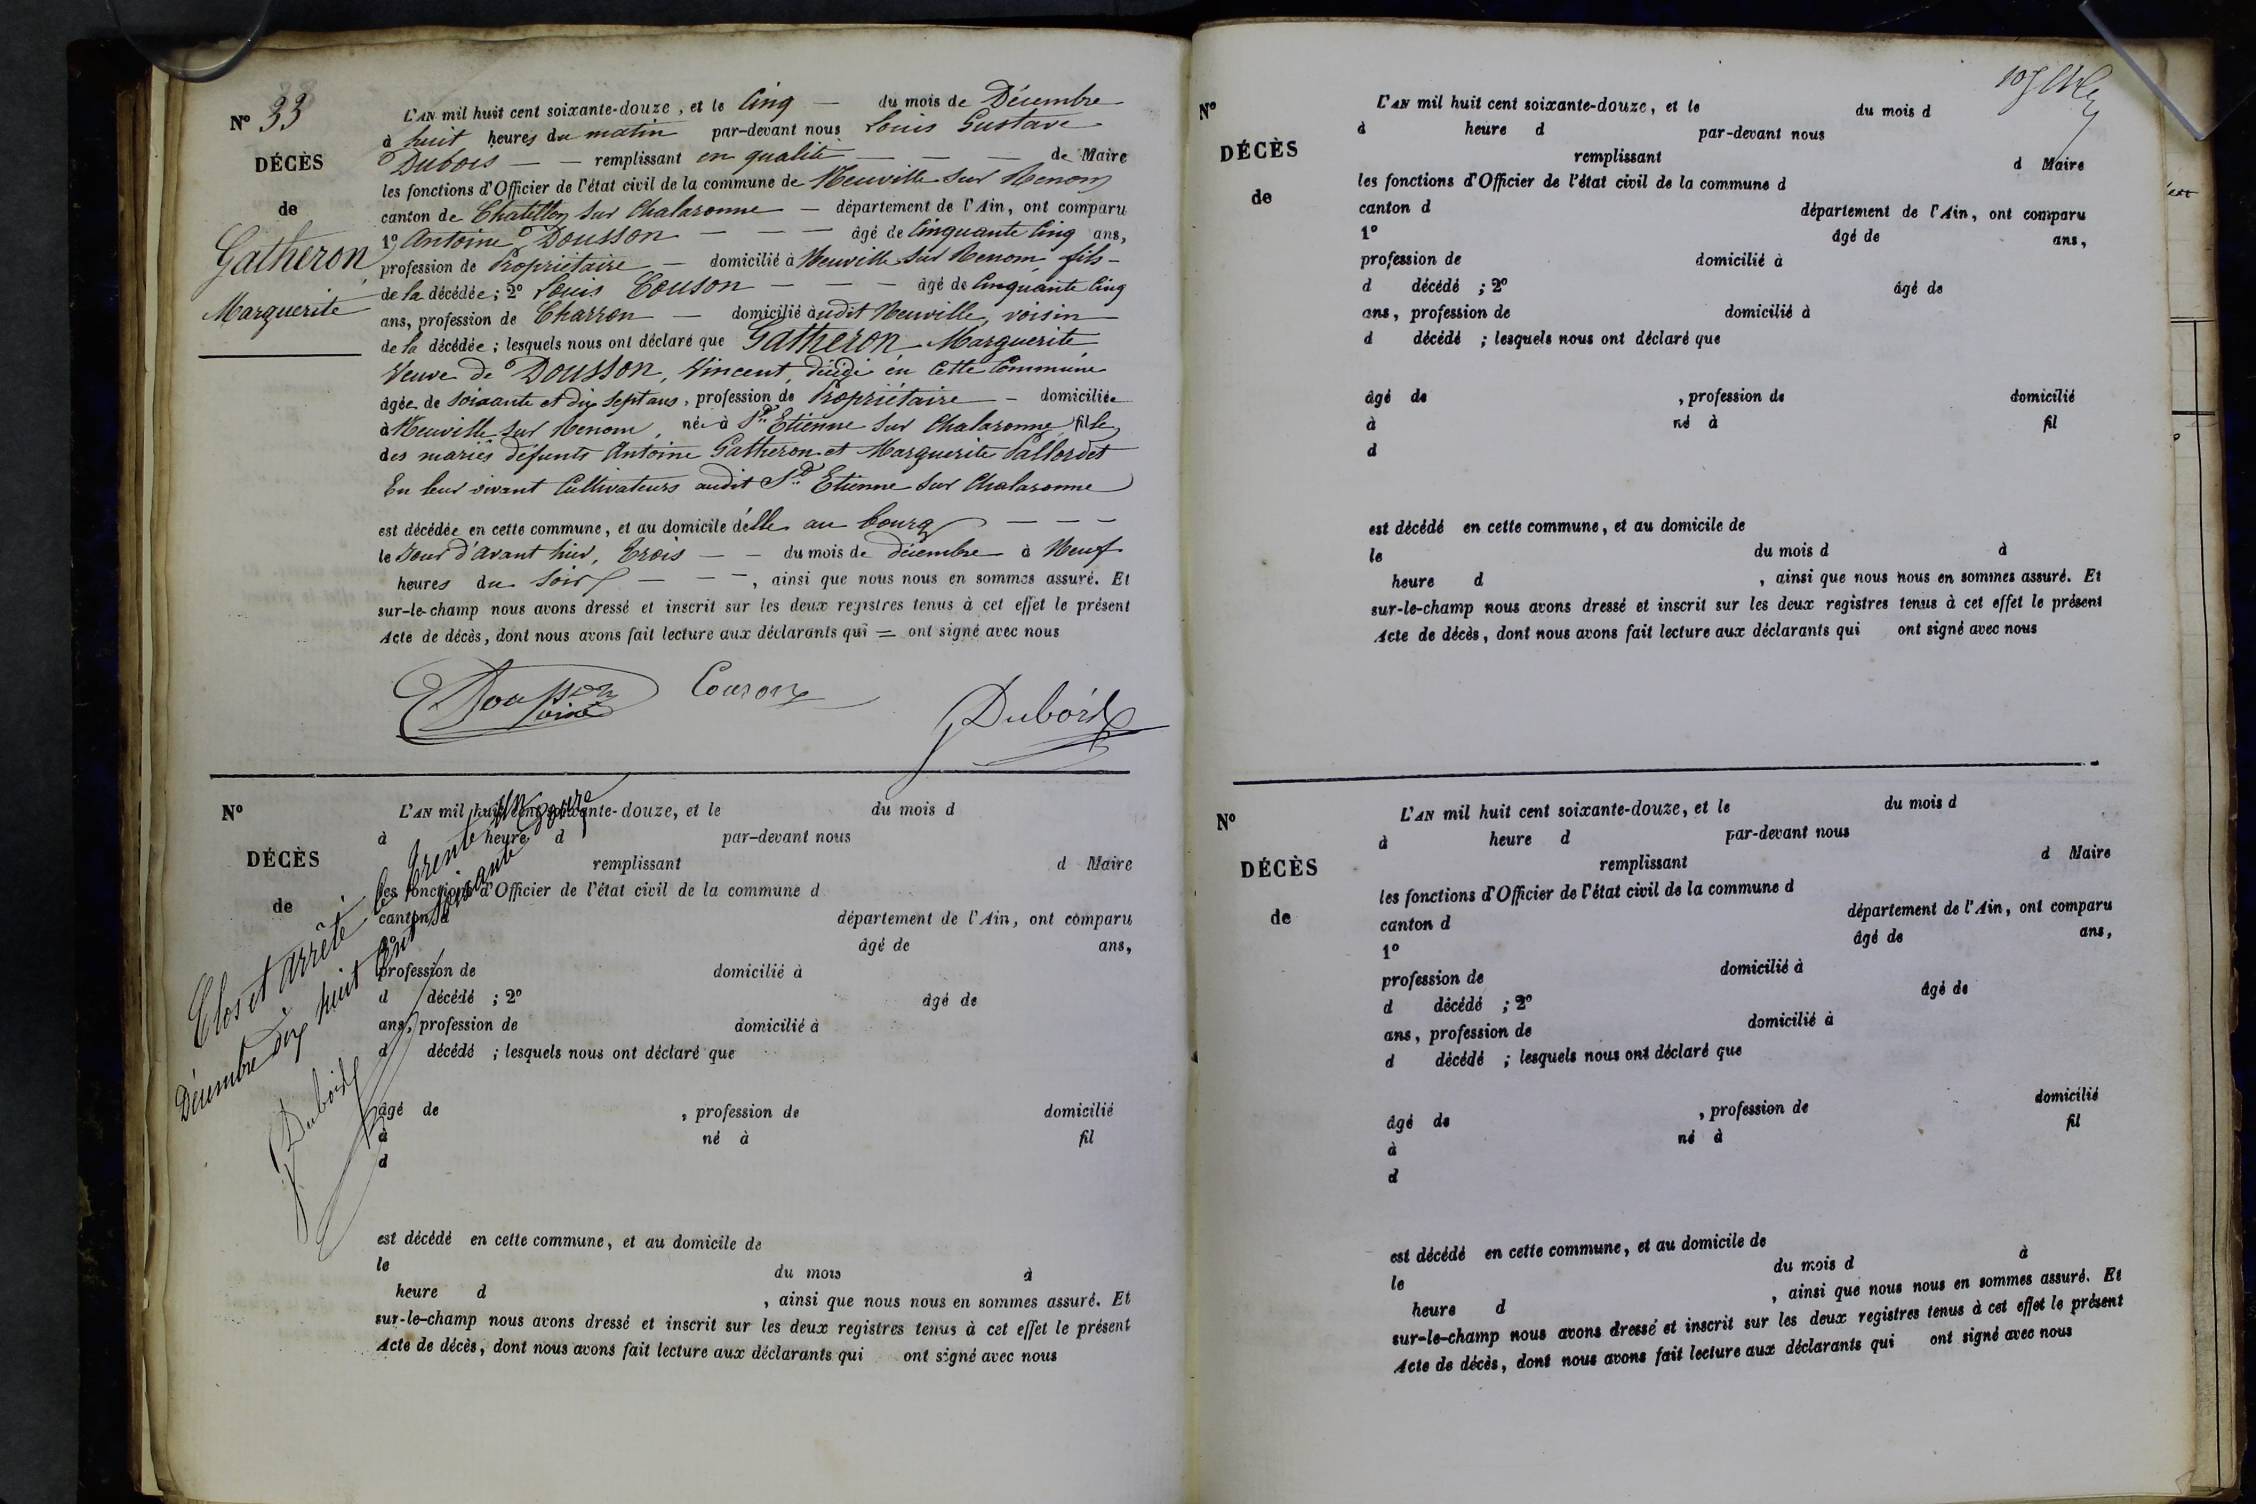 N° 33
DÉCÈS
de
Gatheron
Marguerite
L'AN mil huit cent soixante-douze, et le Cinq — du mois de Décembre
à huit heures du matin par-devant nous Louis Gustave
Dubois — — remplissant en qualité — — — de Maire
les fonctions d'Officier de l'état civil de la commune de Neuville sur Renom
canton de Chatillon sur Chalaronne — département de l'Ain, ont comparu
1° Antoine Dousson — — — âgé de Cinquante Cinq ans,
profession de Propriétaire — domicilié à Neuville sur Renom fils —
de la décédée ; 2° Louis Couson — — — âgé de Cinquante Cinq
ans, profession de Charron — domicilié audit Neuville, voisin
de la décédée ; lesquels nous ont déclaré que Gatheron Marguerite
Veuve de Dousson, Vincent, en cette Commune
âgée de soixante et dix sept ans, profession de Propriétaire — domiciliée
à Neuville sur Renom, née à St Etienne sur Chalaronne, fille
des mariés défunts Antoine Gatheron et Marguerite
En leur vivant Cultivateurs audit St Etienne sur Chalaronne
est décédée en cette commune, et au domicile d'elle au bourg — — —
le Jour d'avant hier, trois — — du mois de décembre à Neuf
heures du soir — — —, ainsi que nous nous en sommes assuré. Et
sur-le-champ nous avons dressé et inscrit sur les deux registres tenus à cet effet le présent
Acte de décès, dont nous avons fait lecture aux déclarants qui = ont signé avec nous
Dousson Couson
Dubois
N°
DÉCÈS
de
L'AN mil huit cent soixante-douze, et le du mois d
à heure d par-devant nous
remplissant d Maire
les fonctions d'Officier de l'état civil de la commune d
canton d département de l'Ain, ont comparu
1° âgé de ans,
profession de domicilié à
d décédé ; 2° âgé de
ans, profession de domicilié à
d décédé ; lesquels nous ont déclaré que
âgé de , profession de domicilié
à né à fil
d
est décédé en cette commune, et au domicile de
le du mois à
heure d , ainsi que nous nous en sommes assuré. Et
sur-le-champ nous avons dressé et inscrit sur les deux registres tenus à cet effet le présent
Acte de décès, dont nous avons fait lecture aux déclarants qui ont signé avec nous
Clos et arrêté le trente un
Décembre dix huit Cent soixante douze
Dubois
N°
DÉCÈS
de
L'AN mil huit cent soixante-douze, et le du mois d
à heure d par-devant nous
remplissant d Maire
les fonctions d'Officier de l'état civil de la commune d
canton d département de l'Ain, ont comparu
1° âgé de ans,
profession de domicilié à
d décédé ; 2° âgé de
ans, profession de domicilié à
d décédé ; lesquels nous ont déclaré que
âgé de , profession de domicilié
à né à fil
d
est décédé en cette commune, et au domicile de
le du mois d à
heure d , ainsi que nous nous en sommes assuré. Et
sur-le-champ nous avons dressé et inscrit sur les deux registres tenus à cet effet le présent
Acte de décès, dont nous avons fait lecture aux déclarants qui ont signé avec nous
N°
DÉCÈS
de
L'AN mil huit cent soixante-douze, et le du mois d
à heure d par-devant nous
remplissant d Maire
les fonctions d'Officier de l'état civil de la commune d
canton d département de l'Ain, ont comparu
1° âgé de ans,
profession de domicilié à
d décédé ; 2° âgé de
ans, profession de domicilié à
d décédé ; lesquels nous ont déclaré que
âgé de , profession de domicilié
à né à fil
d
est décédé en cette commune, et au domicile de
le du mois d à
heure d , ainsi que nous nous en sommes assuré. Et
sur-le-champ nous avons dressé et inscrit sur les deux registres tenus à cet effet le présent
Acte de décès, dont nous avons fait lecture aux déclarants qui ont signé avec nous